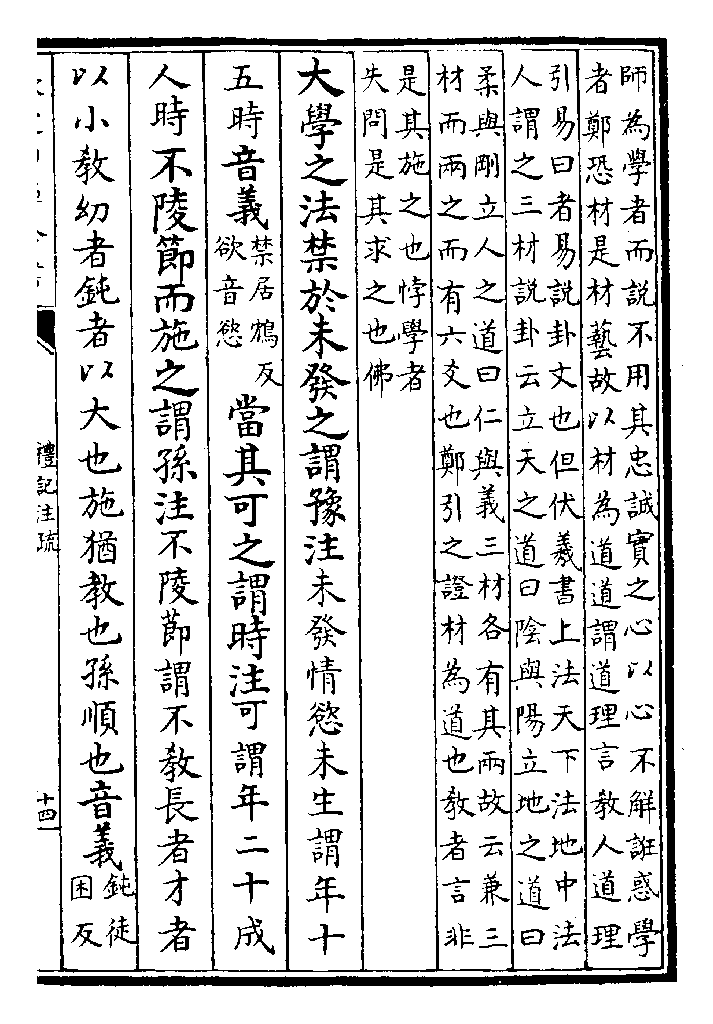 師為學者而說不用其忠誠實之心以心不解誑惑學
者鄭恐材是材藝故以材為道道謂道理言教人道理
引易曰者易說卦文也但伏羲書上法天下法地中法
人謂之三材說卦云立天之道曰陰與陽立地之道曰
柔與剛立人之道曰仁與義三材各有其兩故云兼三
材而兩之而有六爻也鄭引之證材為道也教者言非
是其施之也悖學者
失問是其求之也佛
大學之法禁於未發之謂豫注未發情慾未生謂年十
五時音義禁居鴆反欲音慾當其可之謂時注可謂年二十成
人時不陵節而施之謂孫注不陵節謂不教長者才者
以小教幼者鈍者以大也施猶教也孫順也音義鈍徒困反
禮記注疏
十四